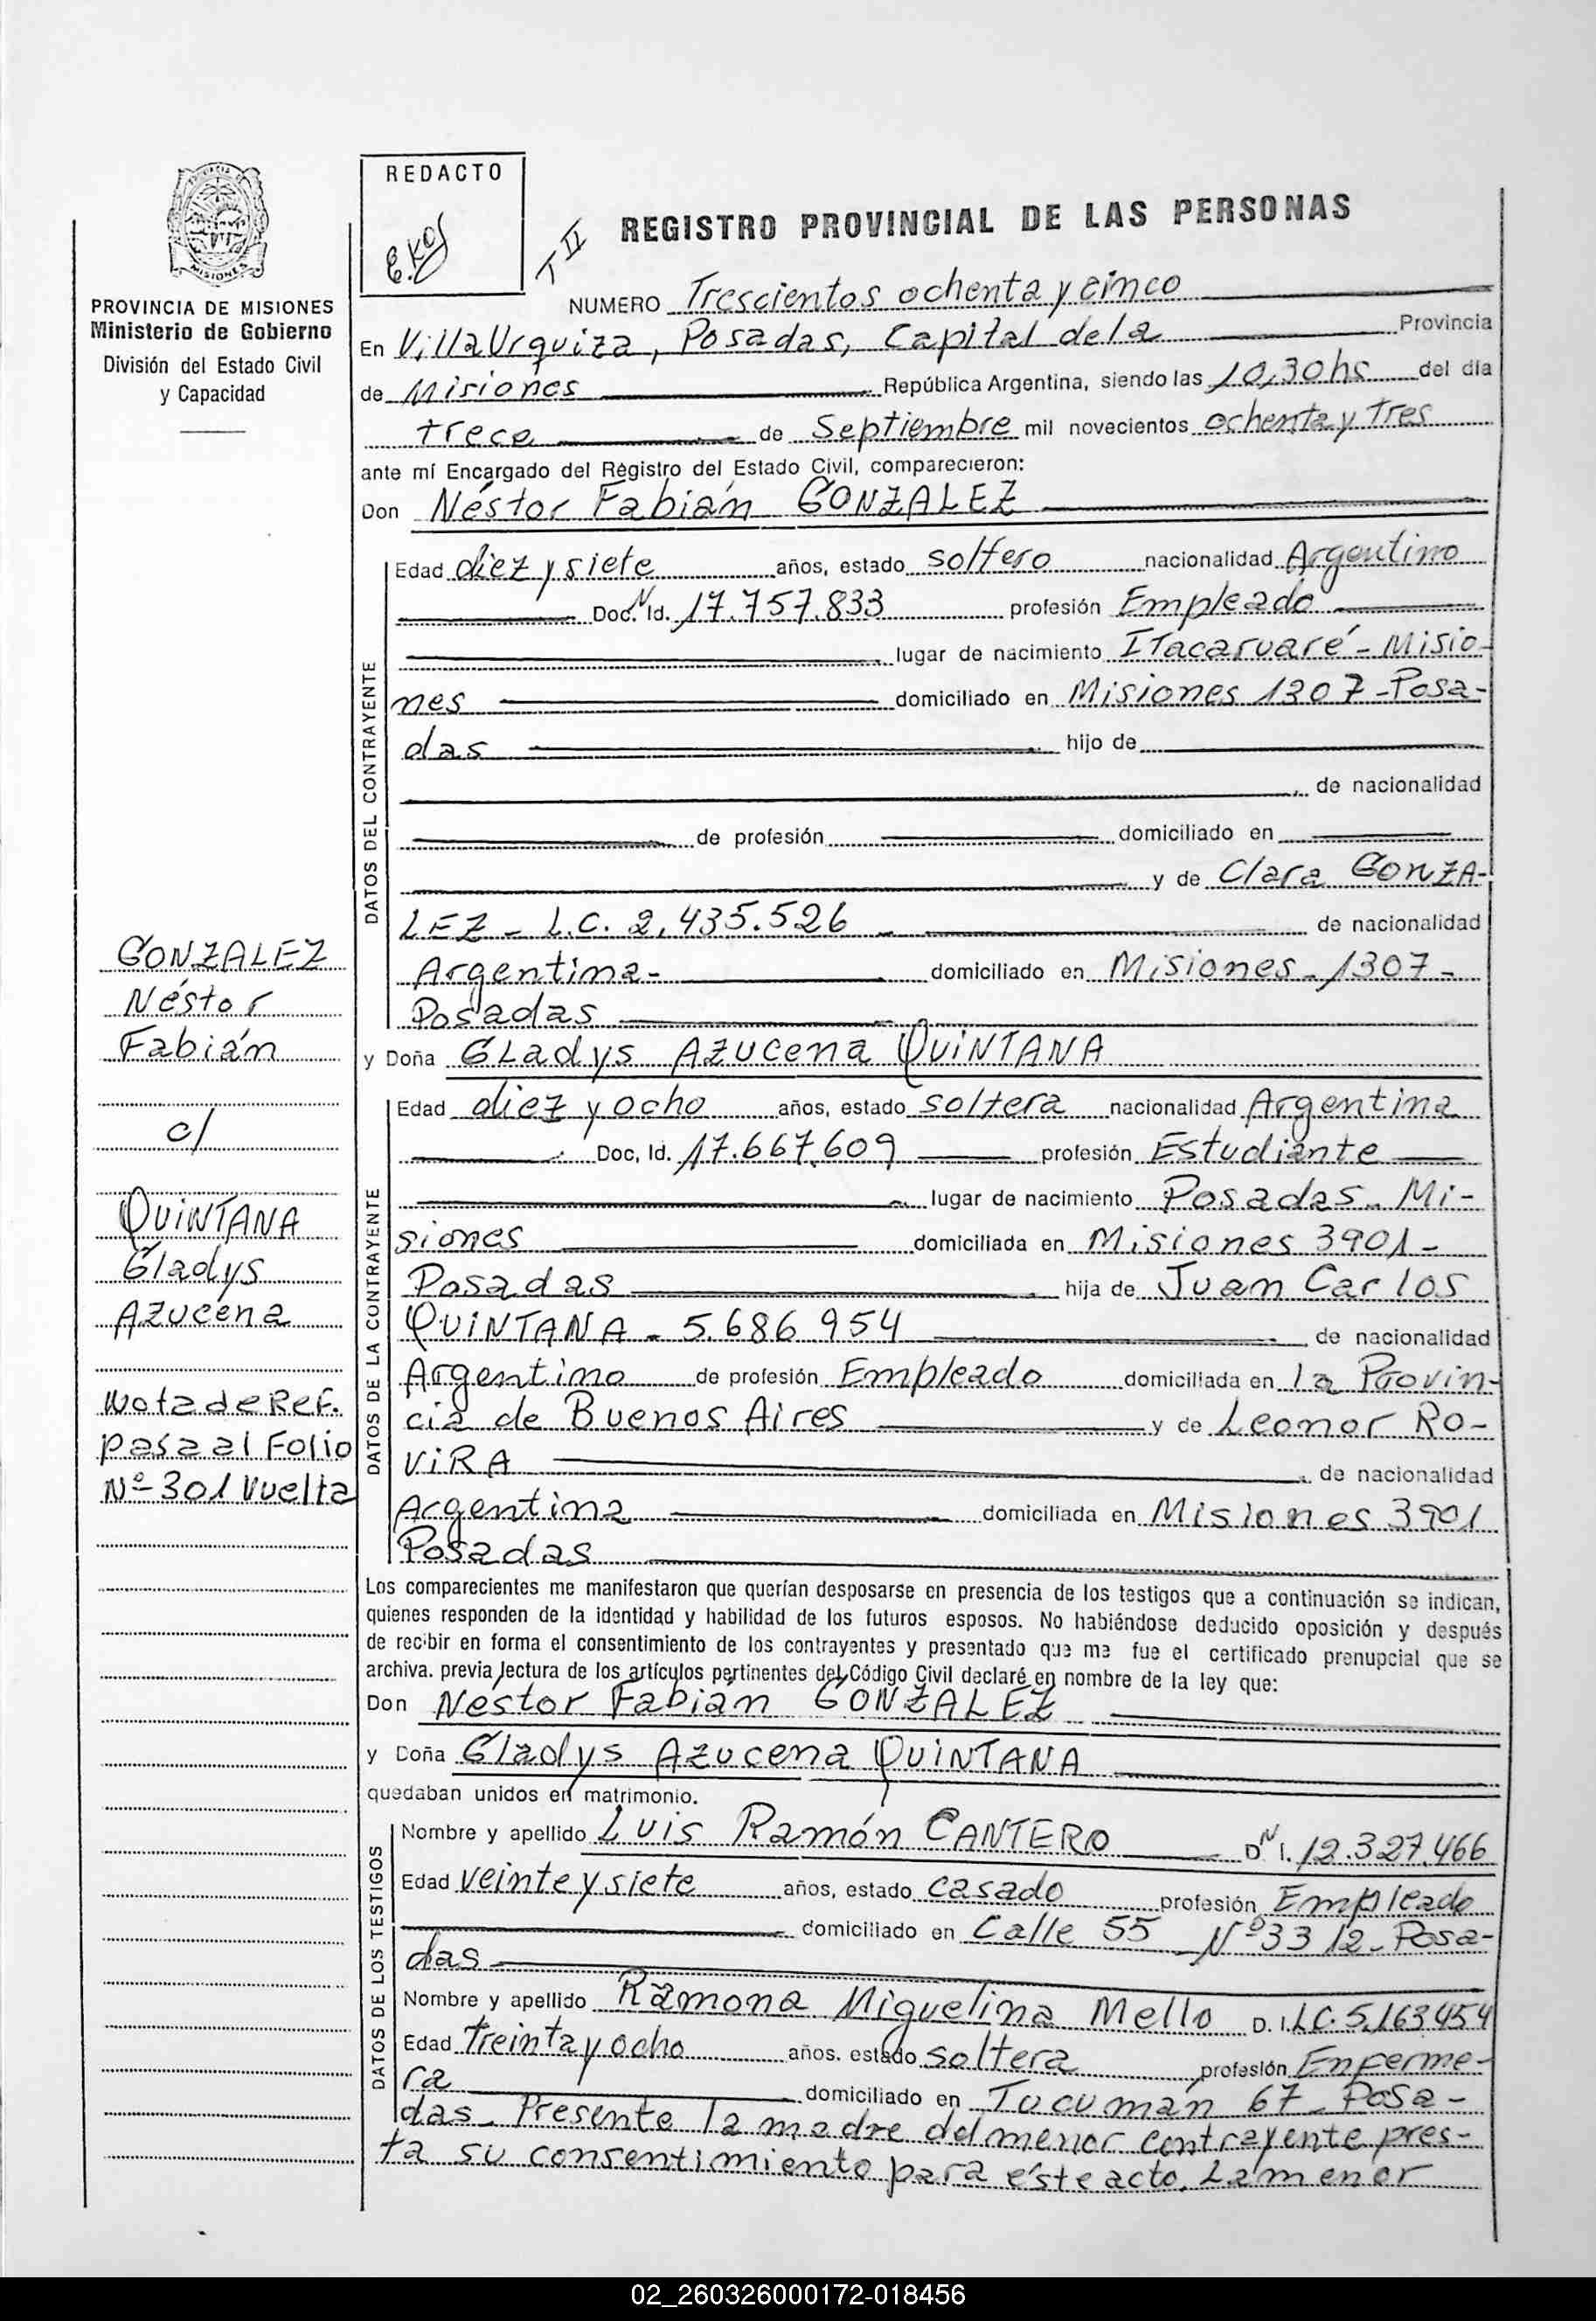 REDACTO
T II
REGISTRO PROVINCIAL DE LAS PERSONAS
MISIONES
PROVINCIA DE MISIONES
Ministerio de Gobierno
División del Estado Civil
y Capacidad
NUMERO Trescientos ochenta y cinco
En Villa Urquiza, Posadas, Capital de la Provincia
de Misiones República Argentina, siendo las 10,30 hs del día
trece de Septiembre mil novecientos ochenta y Tres
ante mí Encargado del Registro del Estado Civil, comparecieron:
Don Néstor Fabián GONZALEZ
DATOS DEL CONTRAYENTE
Edad diez y siete años, estado soltero nacionalidad Argentino
Doc. N Id. 17.757.833 profesión Empleado
lugar de nacimiento ITacaruaré - Misio-
nes domiciliado en Misiones 1307 - Posa-
das hijo de
de nacionalidad
de profesión domiciliado en
y de Clara GONZA-
LEZ - L.C. 2,435.526 - de nacionalidad
Argentina - domiciliado en Misiones - 1307 -
Posadas
y Doña GLadys AZUCena QUINTANA
DATOS DE LA CONTRAYENTE
Edad diez y ocho años, estado soltera nacionalidad Argentina
Doc, Id. 17.667.609 profesión Estudiante
lugar de nacimiento Posadas - Mi-
siones domiciliada en Misiones 3901 -
Posadas hija de Juan Carlos
QUINTANA - 5.686.954 de nacionalidad
Argentino de profesión Empleado domiciliada en la Provin-
cia de Buenos Aires y de Leonor RO-
VIRA de nacionalidad
Argentina domiciliada en Misiones 3901
Posadas
GONZALEZ
Néstor
Fabián
c/
QUINTANA
Gladys
AZUCena
Nota de Ref.
pasa al Folio
Nº 301 Vuelta
Los comparecientes me manifestaron que querían desposarse en presencia de los testigos que a continuación se indican,
quienes responden de la identidad y habilidad de los futuros esposos. No habiéndose deducido oposición y después
de recibir en forma el consentimiento de los contrayentes y presentado que me fue el certificado prenupcial que se
archiva. previa lectura de los artículos pertinentes del Código Civil declaré en nombre de la ley que:
Don Néstor Fabián GONZALEZ
y Doña Gladys AZUCena QUINTANA
quedaban unidos en matrimonio.
DATOS DE LOS TESTIGOS
Nombre y apellido Luis Ramón CANTERO D N I. 12.327.466
Edad veinte y siete años, estado casado profesión Empleado
domiciliado en Calle 55 Nº 3312 - Posa-
das
Nombre y apellido Ramona Miguelina Mello D. I. L.C. 5.163.454
Edad Treinta y ocho años. estado soltera profesión Enferme-
ra domiciliado en Tucumán 67 - Posa-
das - Presente la madre del menor contrayente pres-
ta su consentimiento para éste acto. La menor
02_260326000172-018456